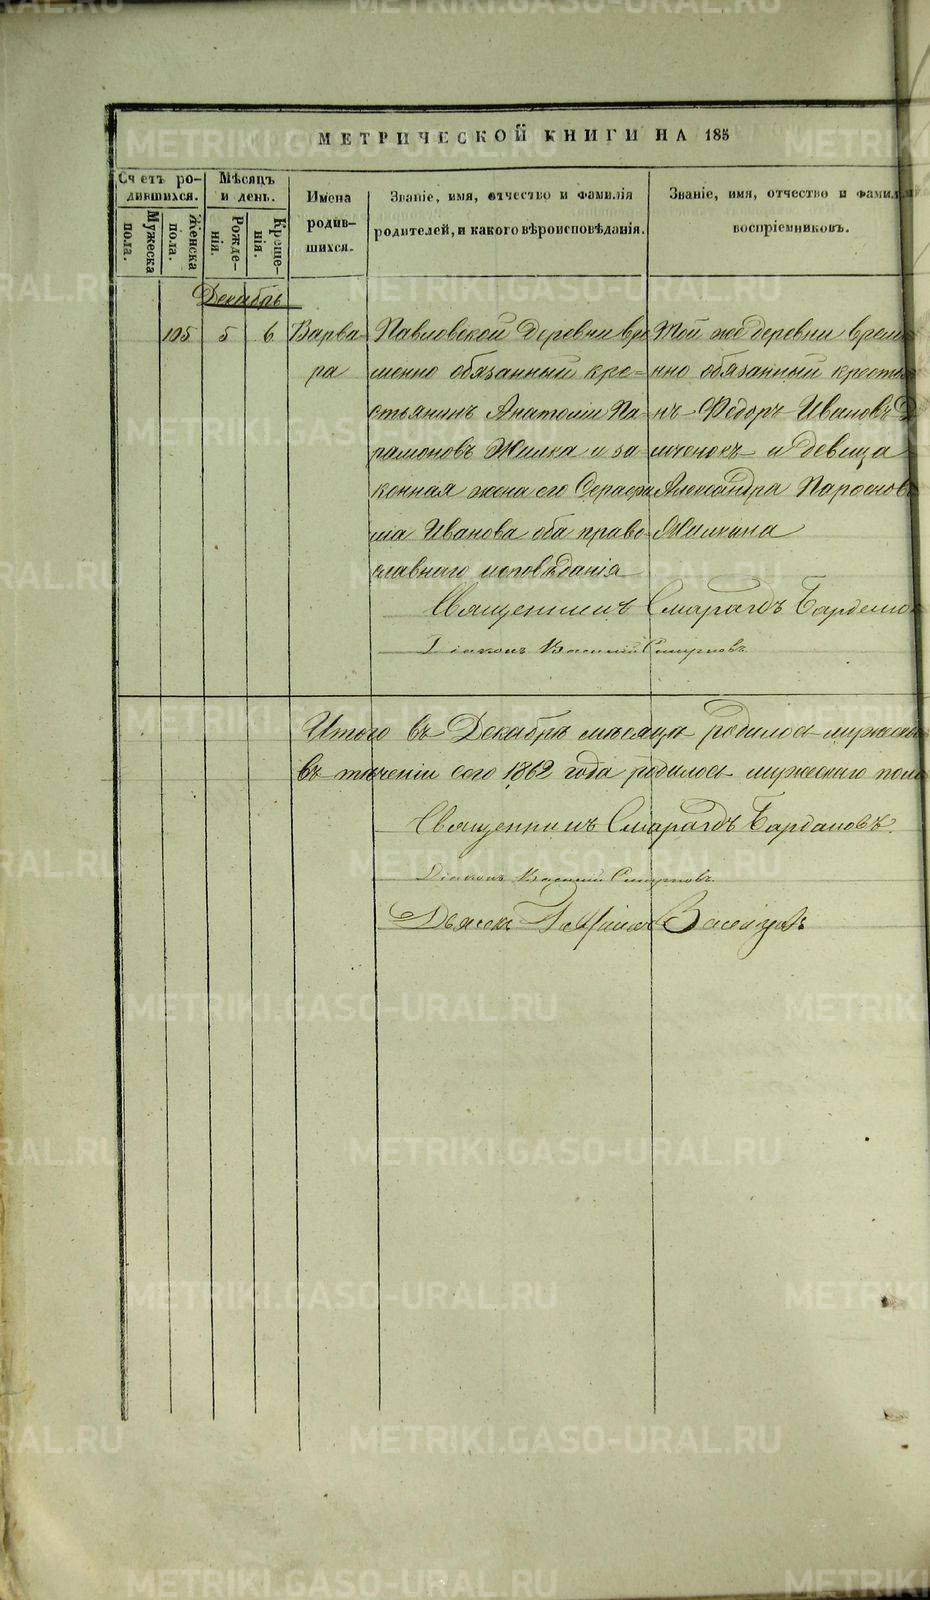 МЕТРИЧЕСКОЙ КНИГИ НА 185
Счетъ ро-
дившихся.
Мѣсяцъ
и день.
Мужеска
пола.
Женска
пола.
Рожде-
нія.
Креще-
нія.
Имена
родив-
шихся.
Званіе, имя, отчество и фамилія
родителей, и какого вѣроисповѣданія.
Званіе, имя, отчество и фамилія
воспріемниковъ.
Декабрь
105 5 6 Варва-
ра
Павловской Деревни вре-
менно обязанный кре-
стьянинъ Анатолій Па-
рамоновъ Жилка и за-
конная жена его Серафи-
ма Иванова оба право-
славнаго исповѣданія
Той же деревни време
нно обязанный крестья
нъ Ѳедоръ Ивановъ
и девица
Александра
Жилкина
Священникъ Смарагдъ
Діаконъ Василій Смирновъ
Итого въ Декабрѣ мѣсяцѣ родилось мужеска
въ теченіи сего 1862 года родилось мужескаго пола
Священникъ Смарагдъ
Діаконъ Василій Смирновъ
METRIKI.GASO-URAL.RU